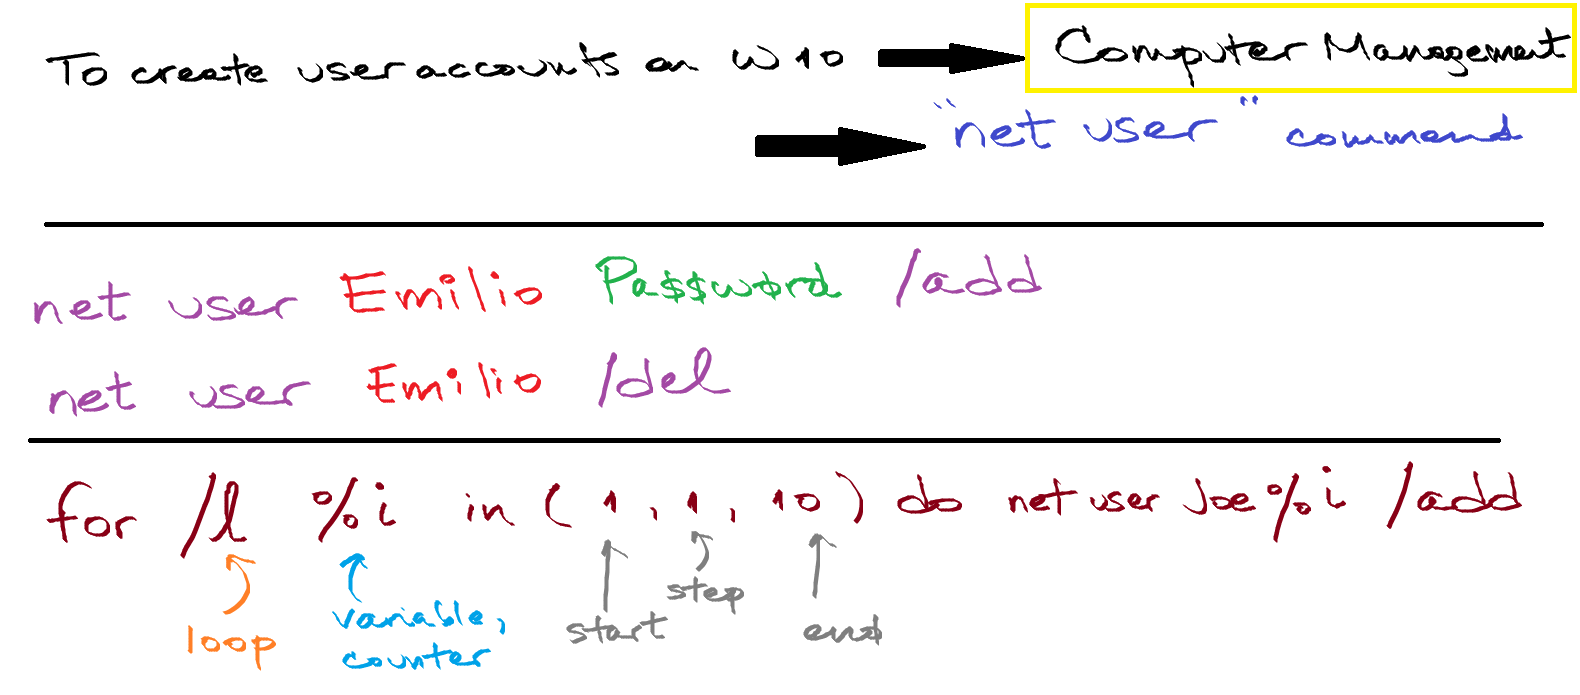 To create user accounts on W10 Computer Management
"net user" command
net user Emilio Pa$$w0rd /add
net user Emilio /del
for /l %i in (1,1,10) do net user Joe%i /add
loop variable, counter start step end